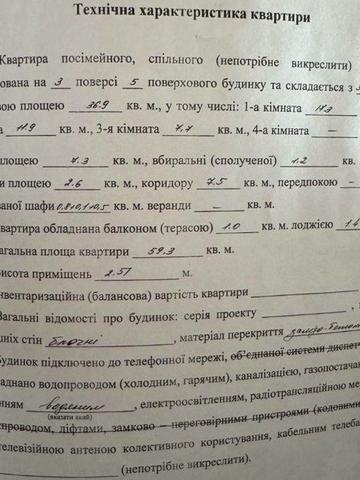 Технічна характеристика квартири
Квартира посімейного, спільного (непотрібне викреслити)
ована на 3 поверсі 5 поверхового будинку та складається з
вою площею 36.9 кв. м., у тому числі: 1-а кімната 17.3
а 11.9 кв. м., 3-я кімната 7.7 кв. м., 4-а кімната —
площею 7.3 кв. м., вбиральні (сполученої) 1.2 кв.
и площею 2.6 кв. м., коридору 7.5 кв. м., передпокою –
ваної шафи 0,8+0,1+0,5 кв. м. веранди — кв. м.
квартира обладнана балконом (терасою) 1.0 кв. м. лоджією 1.4
агальна площа квартири 59.3 кв. м.
исота приміщень 2.57 м.
нвентаризаційна (балансова) вартість квартири
Загальні відомості про будинок: серія проекту
ніх стін блочні, матеріал перекриття
Будинок підключено до телефонної мережі, об'єднаної системи диспетч
аднано водопроводом (холодним, гарячим), каналізацією, газопостачан
нням, електроосвітленням, радіотрансляційною ме
(вказати який)
єпроводом, ліфтами, замково – переговорними пристроями (кодовими
телевізійною антеною колективного користування, кабельним телеба
(непотрібне викреслити).